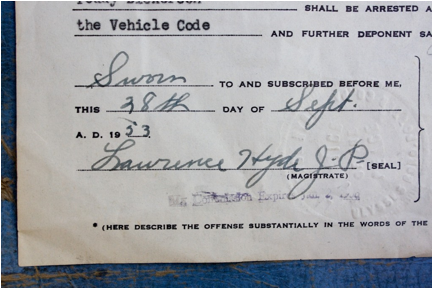 SHALL BE ARRESTED A
the Vehicle Code AND FURTHER DEPONENT SA
Sworn TO AND SUBSCRIBED BEFORE ME,
THIS 28th DAY OF Sept.
A. D. 1953
Lawrence Hyde J.P. [SEAL]
(MAGISTRATE)
My Commission Expires
* (HERE DESCRIBE THE OFFENSE SUBSTANTIALLY IN THE WORDS OF THE